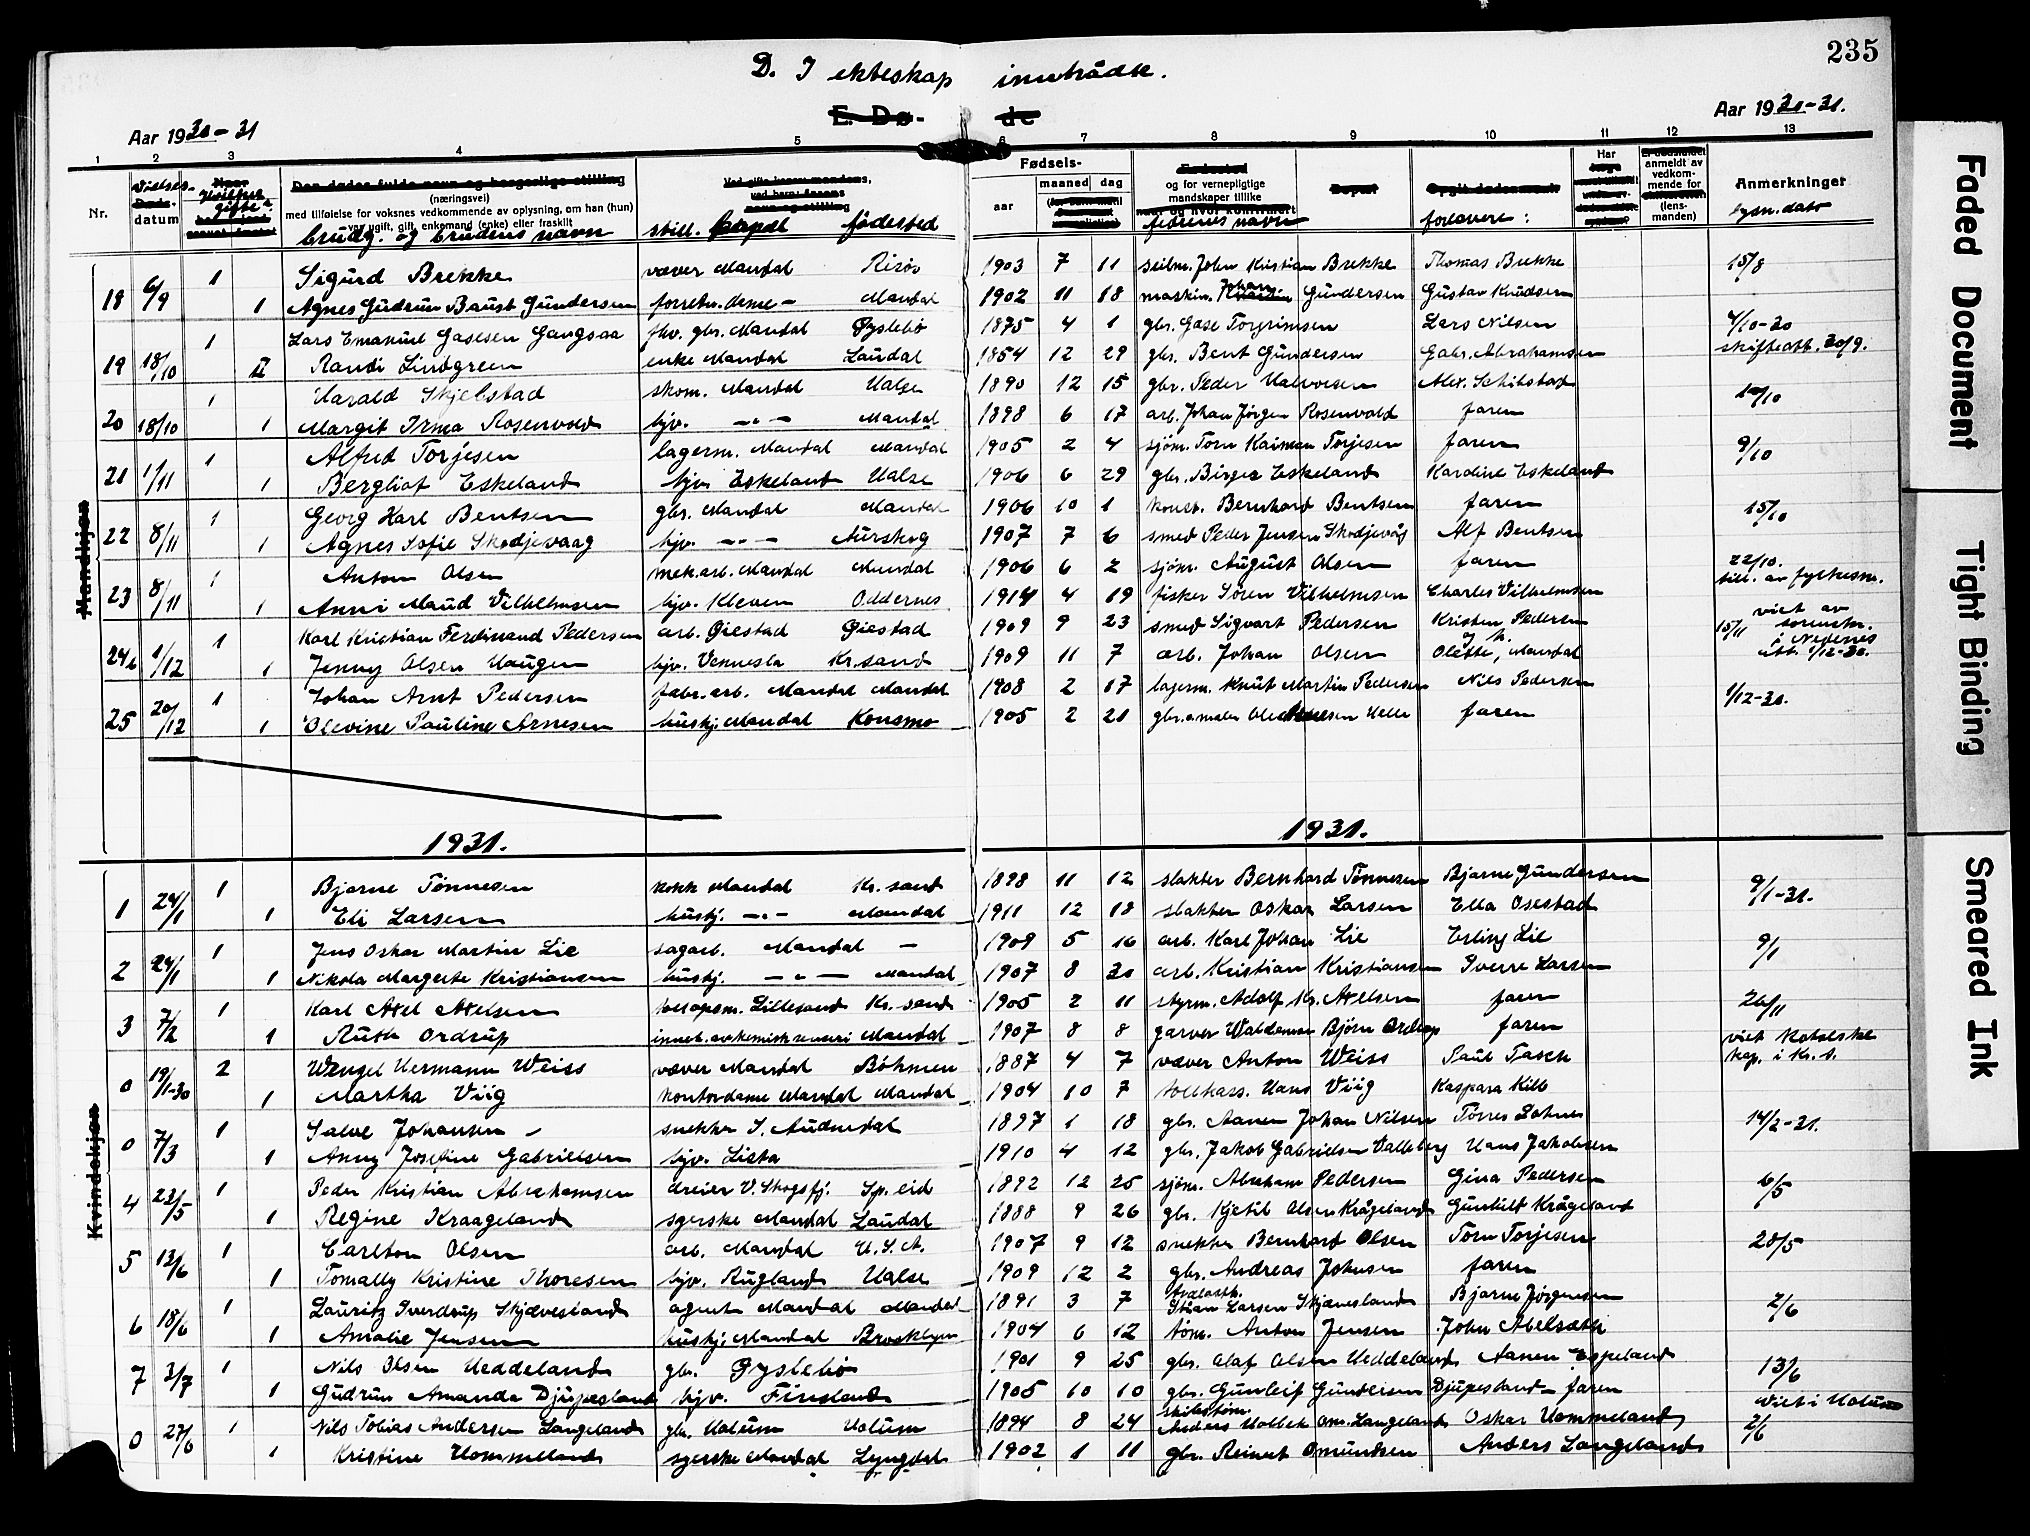 235
D. I ekteskap inntrådte.
E. Døde
Aar 1930-31
Aar 1930-31.
1 2 3 4 5 6 7 8 9 10 11 12 13
Nr.
Vielses-
datum
(næringsvei)
med tilføielse for voksnes vedkommende av oplysning, om han (hun)
var ugift, gift, enkemand (enke) eller fraskilt
brudg. og brudens navn
still. bopæl fødested
Fødsels-
aar maaned dag
og for vernepligtige
mandskaper tillike
fedrenes navn
forlovere:
Har
anmeldt av
vedkom-
mende for
(lens-
manden)
Anmerkninger
lysn. dato
Mandkjøn
18 6/9 1 Sigurd Brekke væver Mandal Risør 1903 7 11 seilm. John Kristian Brekke Thomas Brekke 15/8
1 Agnes Gudrun Baust Gundersen forretn.dame - Mandal 1902 11 18 maskin. Johan Gundersen Gustav Knudsen
19 18/10 1 Lars Emanuel Gasesen Gangsaa fhv. gbr. Mandal Øyslebø 1875 4 1 gbr. Gase Torgrimsen Lars Nilsen 4/10-30
II Randi Lindgreen enke Mandal Laudal 1854 12 29 gbr. Bent Gundersen Gabr. Abrahamsen skifteatt. 30/9.
20 18/10 1 Harald Skjelstad skom. Mandal Halse 1890 12 15 gbr. Peder Halvorsen Alex. Schibstad
1 Margit Irma Rosenvold hjv. -"- Mandal 1898 6 17 arb. Johan Jørgen Rosenvold faren
21 1/11 1 Alfred Torjesen lagerm. Mandal Mandal 1905 2 4 sjøm. Torn Kaiman Torjesen faren 9/10
1 Bergliot Eskeland hjv. Eskeland Halse 1906 6 29 gbr. Birger Eskeland Karoline Eskeland
22 8/11 1 Georg Karl Bentsen gbr. Mandal Mandal 1906 10 1 konst. Bernhard Bentsen faren 15/10
1 Agnes Sofie Skodjevaag hjv. -"- Aurskog 1907 7 6 smed Peder Jensen Skodjevåg Alf Bentsen
23 8/11 1 Anton Olsen mek.arb. Mandal Mandal 1906 6 2 sjøm. August Olsen faren 22/10.
till. av fylkesm.
1 Anni Maud Vilhelmsen hjv. Kleven Oddernes 1914 4 19 fisker Søren Vilhelmsen Charles Vilhelmsen
24 1/12 1 Karl Kristian Ferdinand Pedersen arb. Øiestad Øiestad 1909 9 23 smed Sigvart Pedersen Kristen Pedersen 15/11 viet av
sorenskr.
i Nedenes
att. 1/12-30.
1 Jenny Olsen Haugen hjv. Vennesla Kr.sand 1909 11 7 arb. Johan Olsen Olette, Mandal
25 20/12 1 Johan Arnt Pedersen fabr.arb. Mandal Mandal 1908 2 17 lagerm. Knut Martin Pedersen Nils Pedersen 1/12-30.
1 Olevine Pauline Arnesen hushj. Mandal Konsmo 1905 2 21 faren
1931. 1931.
Kvindekjøn
1 24/1 1 Bjarne Tønnesen kokk Mandal Kr. sand 1898 11 12 slakter Bernhard Tønnesen Bjarne Gundersen 9/1-31.
1 Eli Larsen hushj. -"- Mandal 1911 12 18 slakter Oskar Larsen Ella Osestad
2 24/1 1 Jens Oskar Martin Lie sagarb. Mandal - 1909 5 16 arb. Karl Johan Lie Erling Lie 9/1
1 Nikola Margrete Kristiansen hushj. -"- Mandal 1907 8 30 arb. Kristian Kristiansen Sverre Larsen
3 7/2 1 Karl Axel Axelsen tollopsm. Lillesand Kr. sand 1905 2 11 styrm. Adolf Kr. Axelsen faren 26/11
1 Ruth Ordrup Mandal 1907 8 8 garver Waldemar Bjørn Ordrup faren
0 19/1-30 2 Wenzel Hermann Weiss væver Mandal Böhmen 1887 4 7 væver Anton Weiss Paul Tasch viet Katolske
kap. i Kr. s.
1 Martha Viig kontordame Mandal Mandal 1904 10 7 tollkass. Hans Viig Kaspara Kill
0 7/3 1 Salve Johansen - snekker S. Audnedal 1897 1 18 gbr. Aanen Johan Nilsen 14/2-31.
1 Anny Josefine Gabrielsen hjv. Lista 1910 4 12 gbr. Jakob Gabrielsen Valleberg Hans Jakobsen
4 23/5 1 Peder Kristian Abrahamsen dreier V. Skogsfj. Sp. eid 1892 12 25 sjøm. Abraham Pedersen Gina Pedersen 6/5
1 Regine Kraageland syerske Mandal Laudal 1888 9 26 gbr. Kjetil Olsen Krågeland Gunhilt Krågeland
5 13/6 1 Carlton Olsen arb. Mandal U.S.A. 1907 9 12 snekker Bernhard Olsen Torn Torjesen 28/5
1 Tomally Kristine Thoresen hjv. Rugland Halse 1909 12 2 gbr. Andreas Johnsen faren
6 18/6 1 Lauritz Sverdrup Skjævesland agent Mandal Mandal 1891 3 7 Stian Larsen Skjævesland Bjarne Jørgensen 2/6
1 Amalie Jensen hushj. Mandal Brooklyn 1904 6 12 tøm. Anton Jensen John Abelsæth
7 3/7 1 Nils Olsen Heddeland gbr. Øyslebø 1901 9 25 gbr. Olaf Olsen Heddeland Aanen Espeland 13/6
1 Gudrun Amanda Djupesland hjv. Finsland 1905 10 10 gbr. Gunleif Gundersen Djupesland - faren
0 27/6 1 Nils Tobias Andersen Langeland gbr. Holum Holum 1894 8 24 skibstøm.
Anders Holbek Om. Langeland Oskar Hommeland viet i Holum
2/6
1 Kristine Hommeland syerske Mandal Lyngdal 1902 1 11 gbr. Reinert Omundsen Anders Langeland
Faded Document
Tight Binding
Smeared Ink